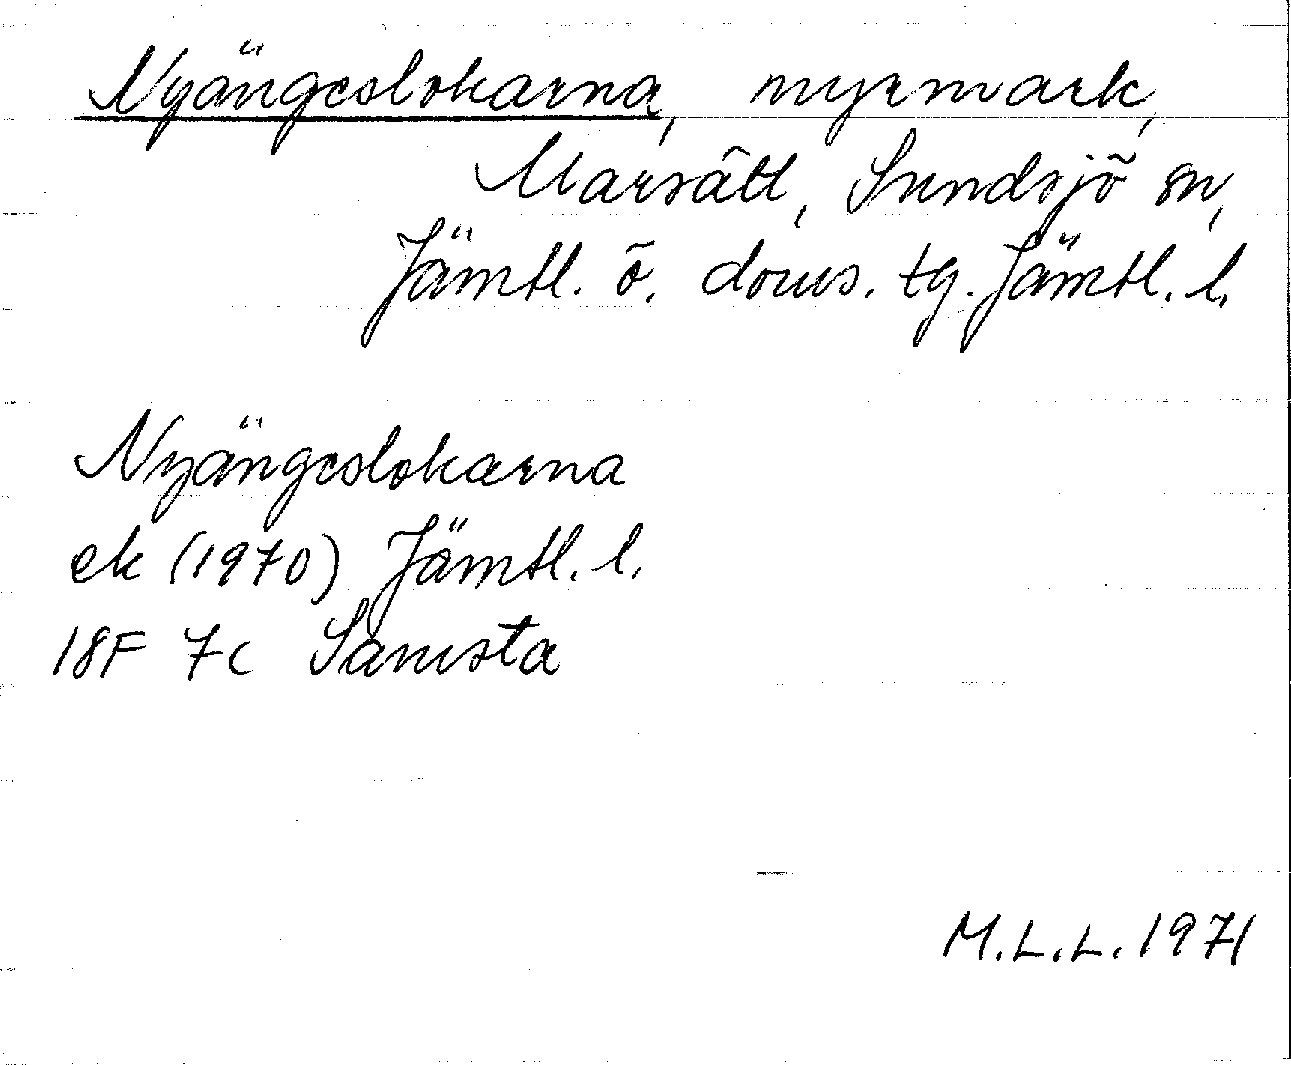 Nyängeslokarna, myrmark,
Marsätt, Sundsjö sn,
Jämtl. ö. doms. tg. Jämtl. l.
Nyängeslokarna
ek (1970) Jämtl. l.
18F 7c Samsta
M.L.L. 1971